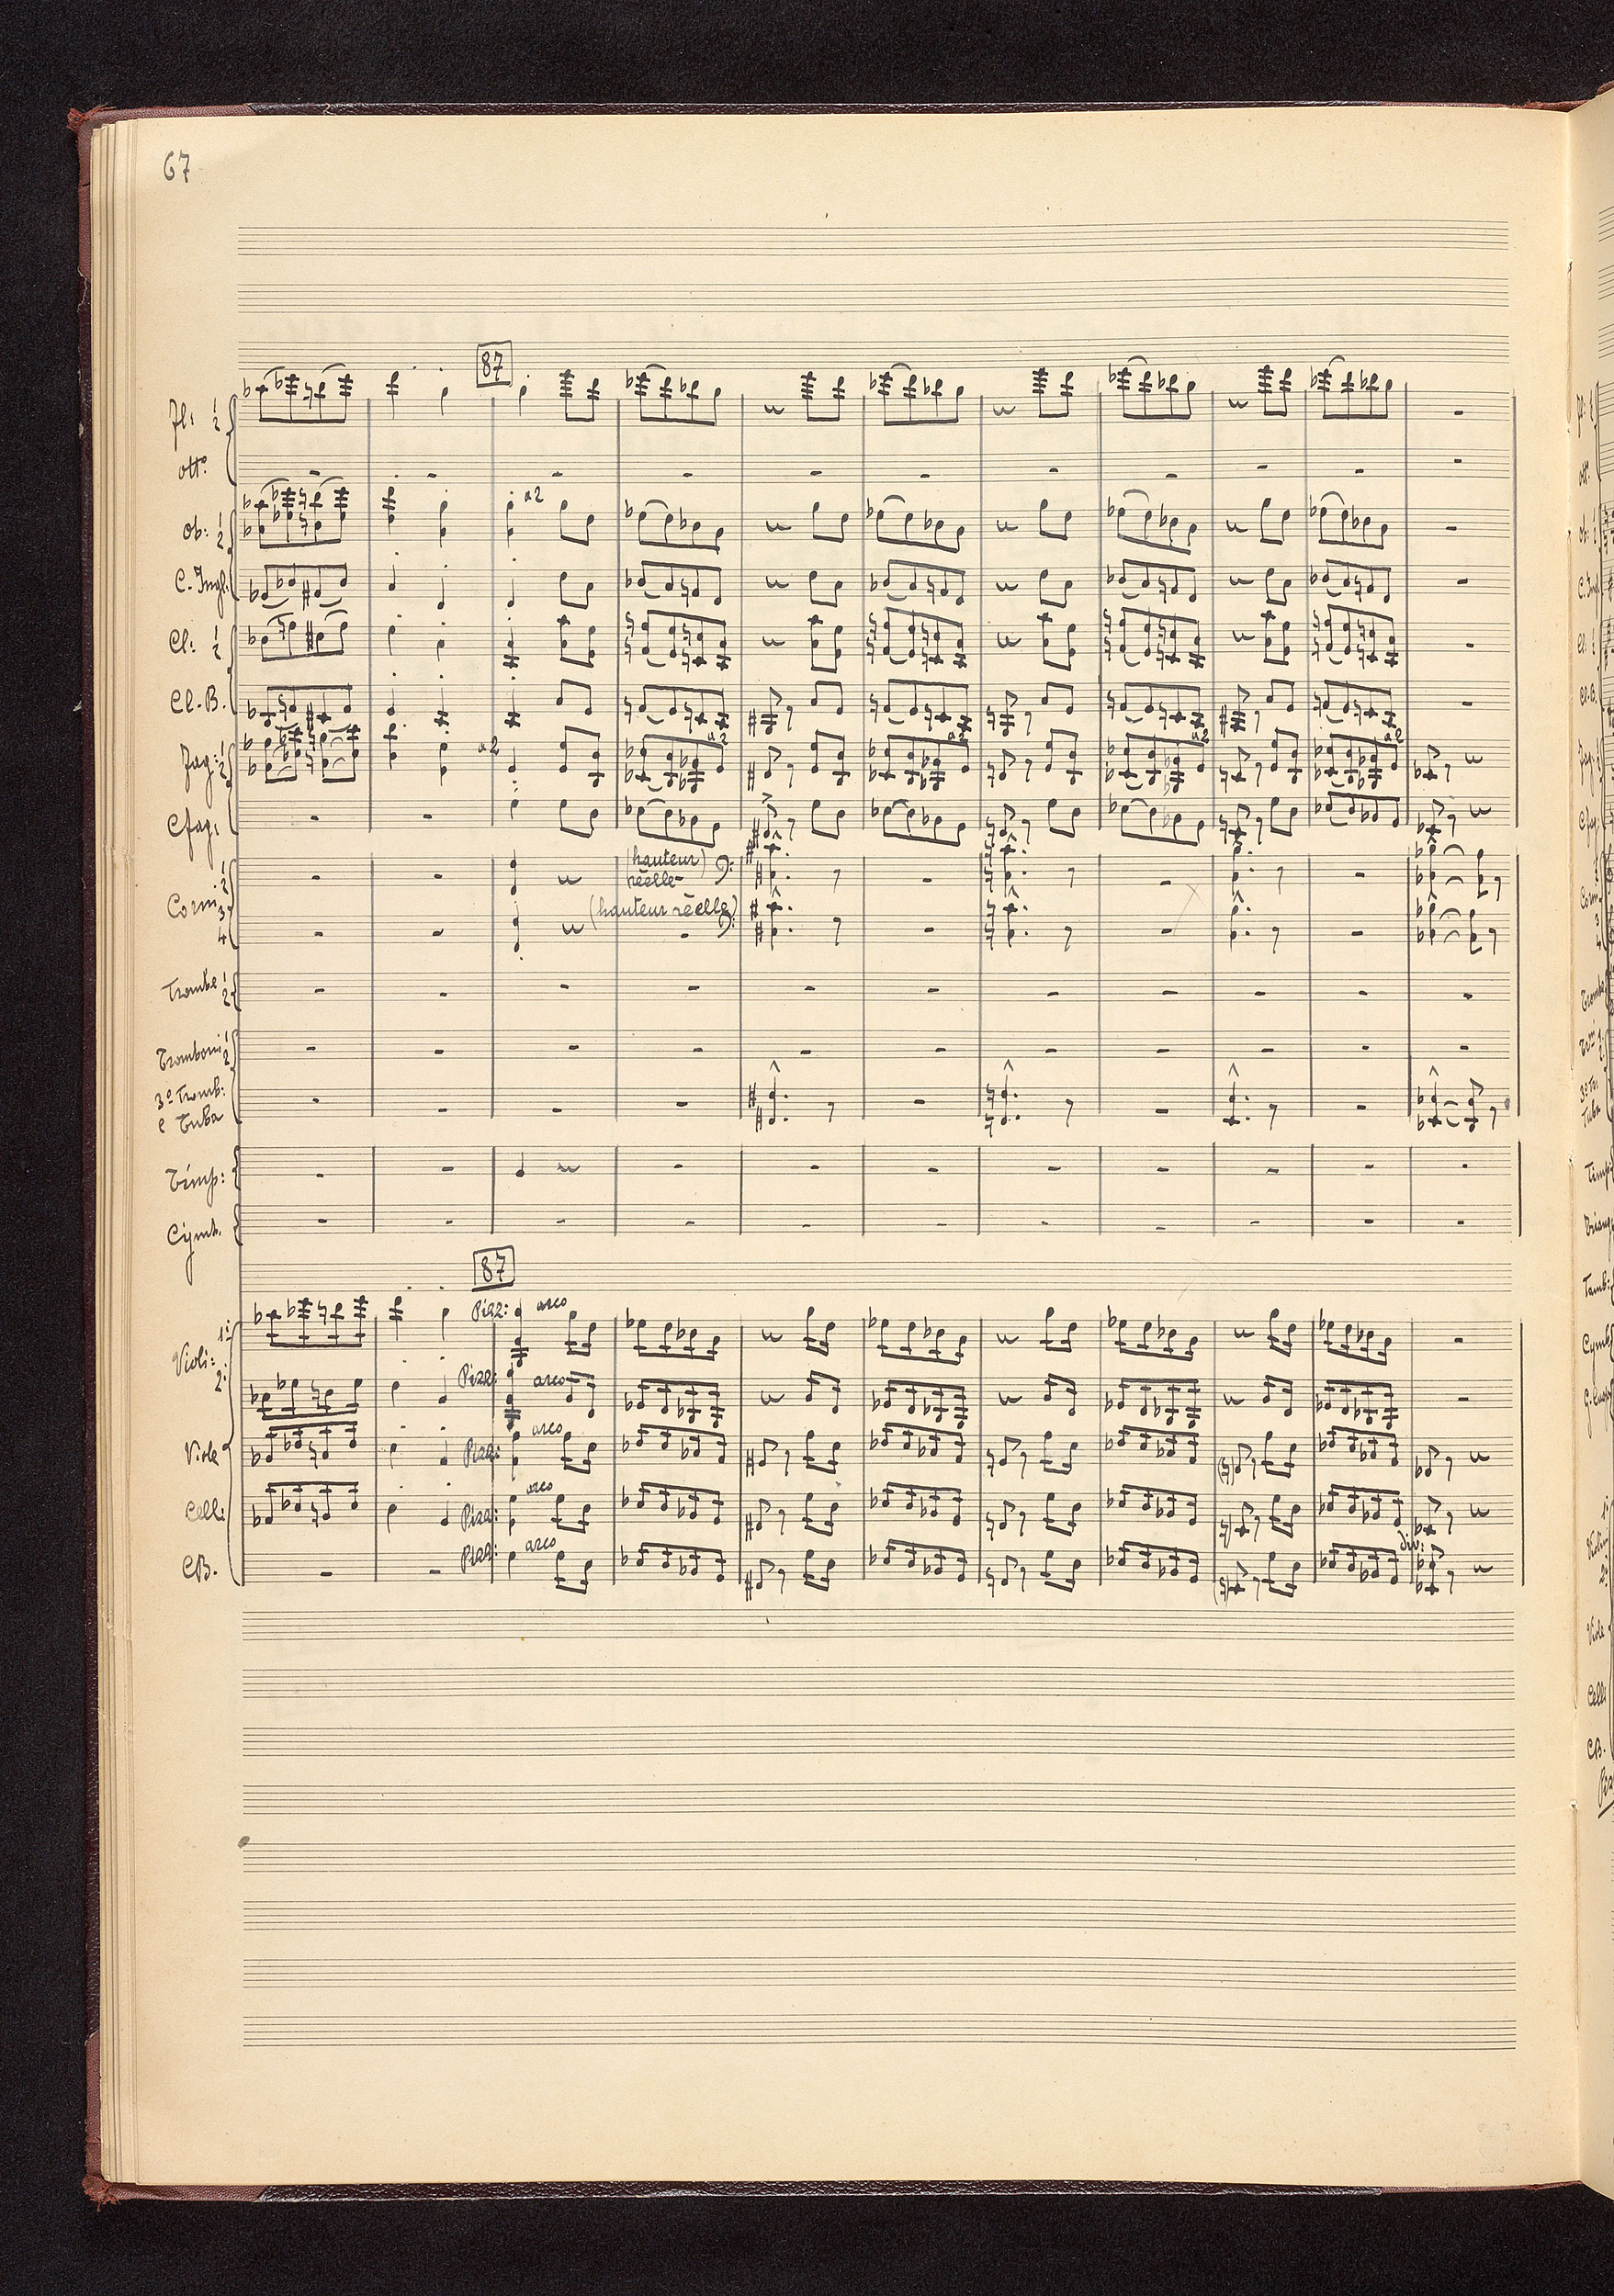 67
87
Fl: 1 2
Otto
a2
Ob: 1 2
C. Ingl:
Cl: 1 2
Cl-B.
a2 a2 a2 a2 a2
Fag: 1 2
Cfag:
(hauteur réelle)
Corni 1 2
(hauteur réelle)
3 4
Trombe 1 2
Tromboni 1 2
3º Tromb:
e Tuba
Timp:
Cymb.
87
Pizz: arco
Violi: 1:
2: Pizz: arco
arco
Viole Pizz:
arco
Celli Pizz:
Pizz: arco div:
CB.